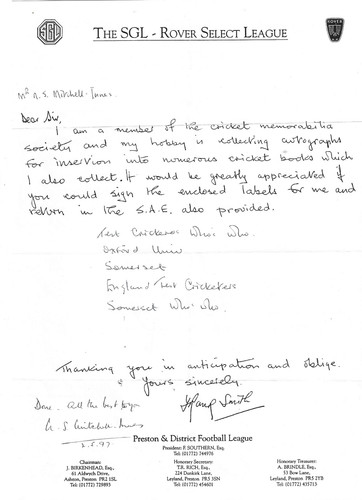 SGL
THE SGL - ROVER SELECT LEAGUE
ROVER
Mr N. S. Mitchell-Innes
Dear Sir,
I am a member of the cricket memorabilia
society and my hobby is collecting autographs
for insertion into numerous cricket books which
I also collect. It would be greatly appreciated if
you could sign the enclosed labels for me and
return in the S.A.E. also provided.
Test Cricketers Who's Who.
Oxford Univ
Somerset
England Test Cricketers
Somerset Who's Who.
Thanking you in anticipation and oblige.
Yours sincerely.
Smith
Done. All the best
N. S. Mitchell-Innes
2.5.97
Preston & District Football League
President: P. SOUTHERN, Esq.,
Tel: (01772) 744970
Chairman:
J. BIRKENHEAD, Esq.,
61 Aldwych Drive,
Ashton, Preston PR2 1SL
Tel: (01772) 729893
Honorary Secretary:
T.B. RICH, Esq.,
224 Dunkirk Lane,
Leyland, Preston PR5 3SN
Tel: (01772) 454601
Honorary Treasurer:
A. BRINDLE, Esq.,
53 Bow Lane,
Leyland, Preston PR5 2YB
Tel: (01772) 435713